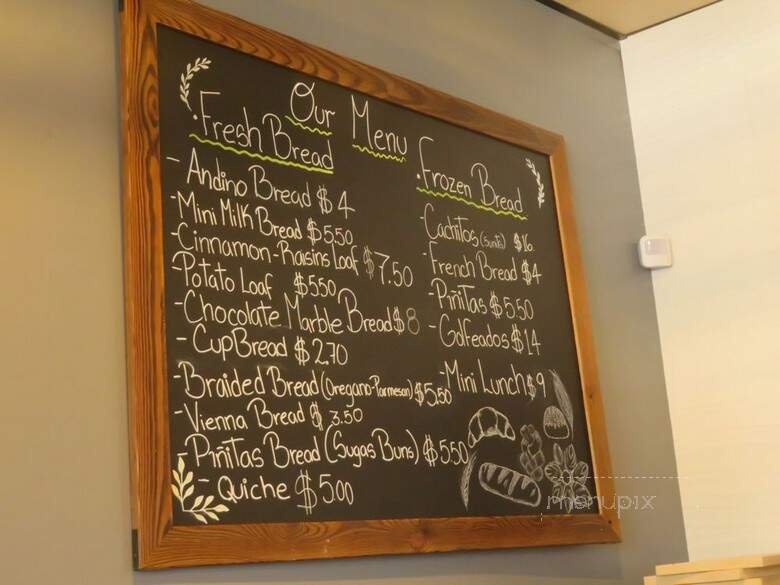 Our Menu
·Fresh Bread
- Andino Bread $4
-Mini Milk Bread $5.50
-Cinnamon-Raisins Loaf $7.50
-Potato Loaf $5.50
-Chocolate Marble Bread $8
- Cup Bread $2.70
-Braided Bread (Oregano-Parmesan) $5.50
-Vienna Bread $3.50
-Piñitas Bread (Sugas Buns) $5.50
- Quiche $5.00
·Frozen Bread
-Cachitos $16.
-French Bread $4
-Piñitas $5.50
-Golfeados $14
-Mini Lunch $9
menupix